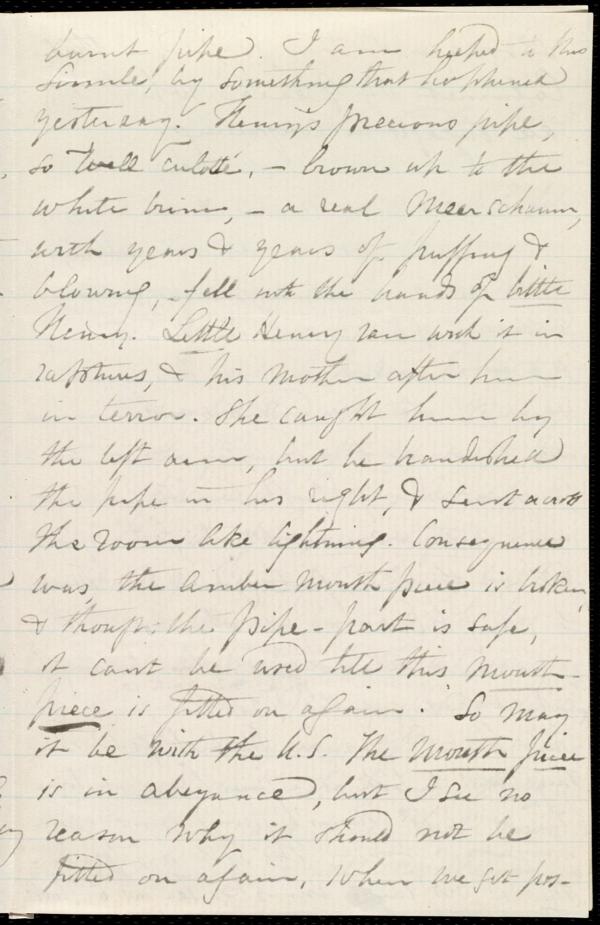 burnt pipe. I am helped to this
simile, by something that happened
yesterday. Henry's precious pipe,
so well culotté, - brown up to the
white brim, - a real Meerschaum,
with years & years of puffing &
blowing, fell into the hands of little
Henry. Little Henry ran with it in
raptures, & his mother after him
in terror. She caught him by
the left arm, but he brandished
the pipe in his right, & sent across
the room like lightning. Consequence
was, the amber mouth piece is broken,
& though the pipe-part is safe,
it cant be used till this mouth-
piece is fitted on again. So may
it be with the A.S. The mouth piece
is in abeyance, but I see no
reason why it should not be
fitted on again, when we get pos-